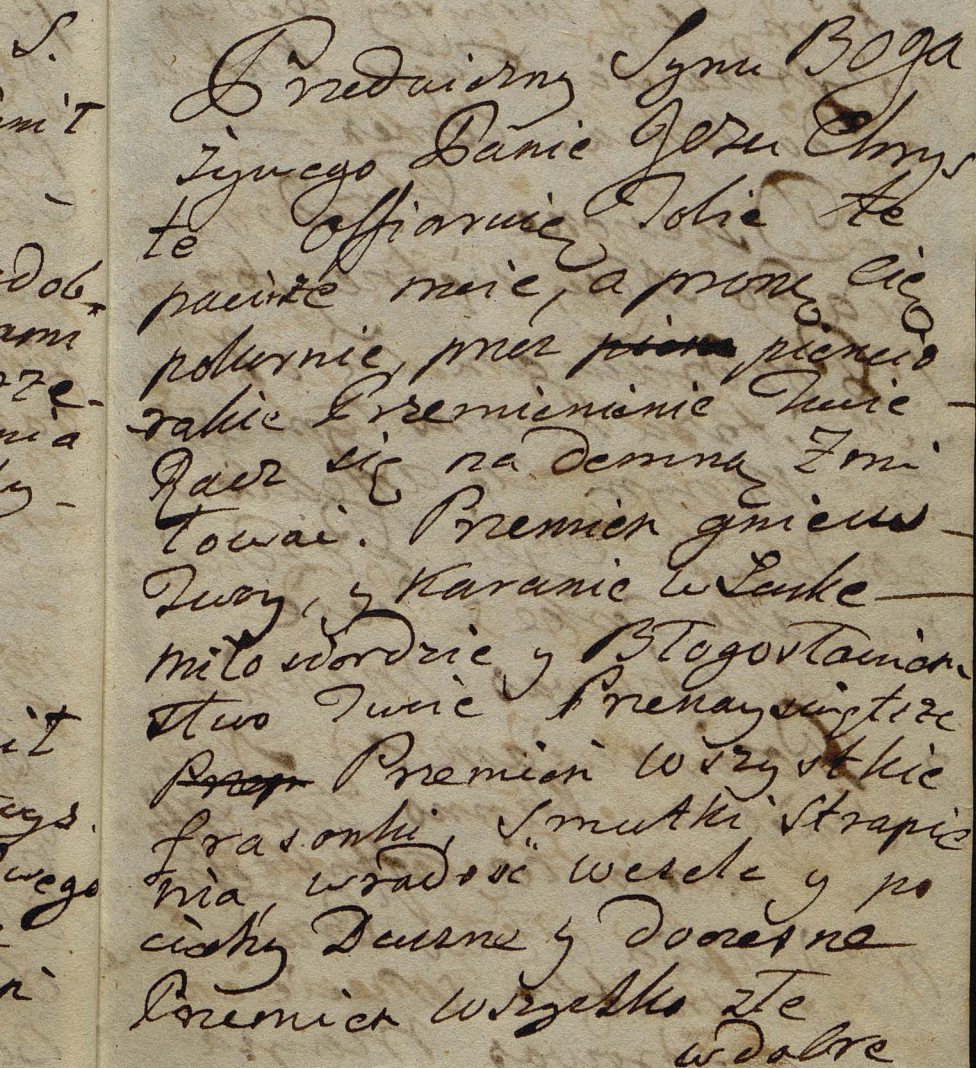 S.
mit
dob
ami
rze
nia
it
wego
Przedwiczny Synu Boga
żywego Panie Jezu Chrys
te offiaruię Tobie te
pacirze moie, a proszę cię
pokornie, przez pięncio
rakie Przemienienie Twoie
Racz się na demną Zmi
łować. Przemien gniew
Twoy, y Karanie w Łaske
miłosiordzie y Błogosławien
stwo Twoie Przenayswiętsze
Przemien wszystkie
frasonki, Smutki Strapie
nia, wradość wesele y po
ciechy Duszne y doczesne
Przemien wszytko złe
wdobre